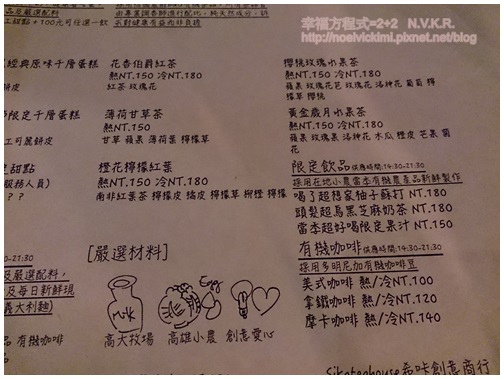 幸福方程式=2+2 N.V.K.R.
http://noelvickimi.pixnet.net/blog
及嚴選配料
經典原味千層蛋糕
餅皮
限定千層蛋糕
工可麗餅皮
甜點
服務人員)
? ?
花香伯爵紅茶
熱NT.150 冷NT.180
紅茶 玫瑰花
薄荷甘草茶
熱NT.150
甘草 蘋果 薄荷葉 檸檬草
橙花檸檬紅葉
熱NT.150 冷NT.180
南非紅葉茶 檸檬皮 橘皮 檸檬草 柳橙 檸檬
櫻桃玫瑰水果茶
熱NT.150 冷NT.180
蘋果 玫瑰花 芭 玫瑰花 洛神花 葡萄 檸
檬草 櫻桃
黃金歲月水果茶
熱NT.150 冷NT.180
蘋果 玫瑰果 洛神花 木瓜 橙皮 芒果 菊
花
限定飲品 供應時間:14:30-21:30
採用在地小農當季有機農產品新鮮製作
喝了超想家柚子蘇打 NT.180
頭髮超烏黑芝麻奶茶 NT.180
當季超好喝限定果汁 NT.150
有機咖啡 供應時間:14:30-21:30
採用多明尼加有機咖啡豆
美式咖啡 熱/冷NT.100
拿鐵咖啡 熱/冷NT.120
摩卡咖啡 熱/冷NT.140
-21:30
及嚴選配料,
及每日新鮮現
義大利麵)
品 有機咖啡
品
[嚴選材料]
milk
Egg
高大牧場 高雄小農 創意愛心
希咔創意商行